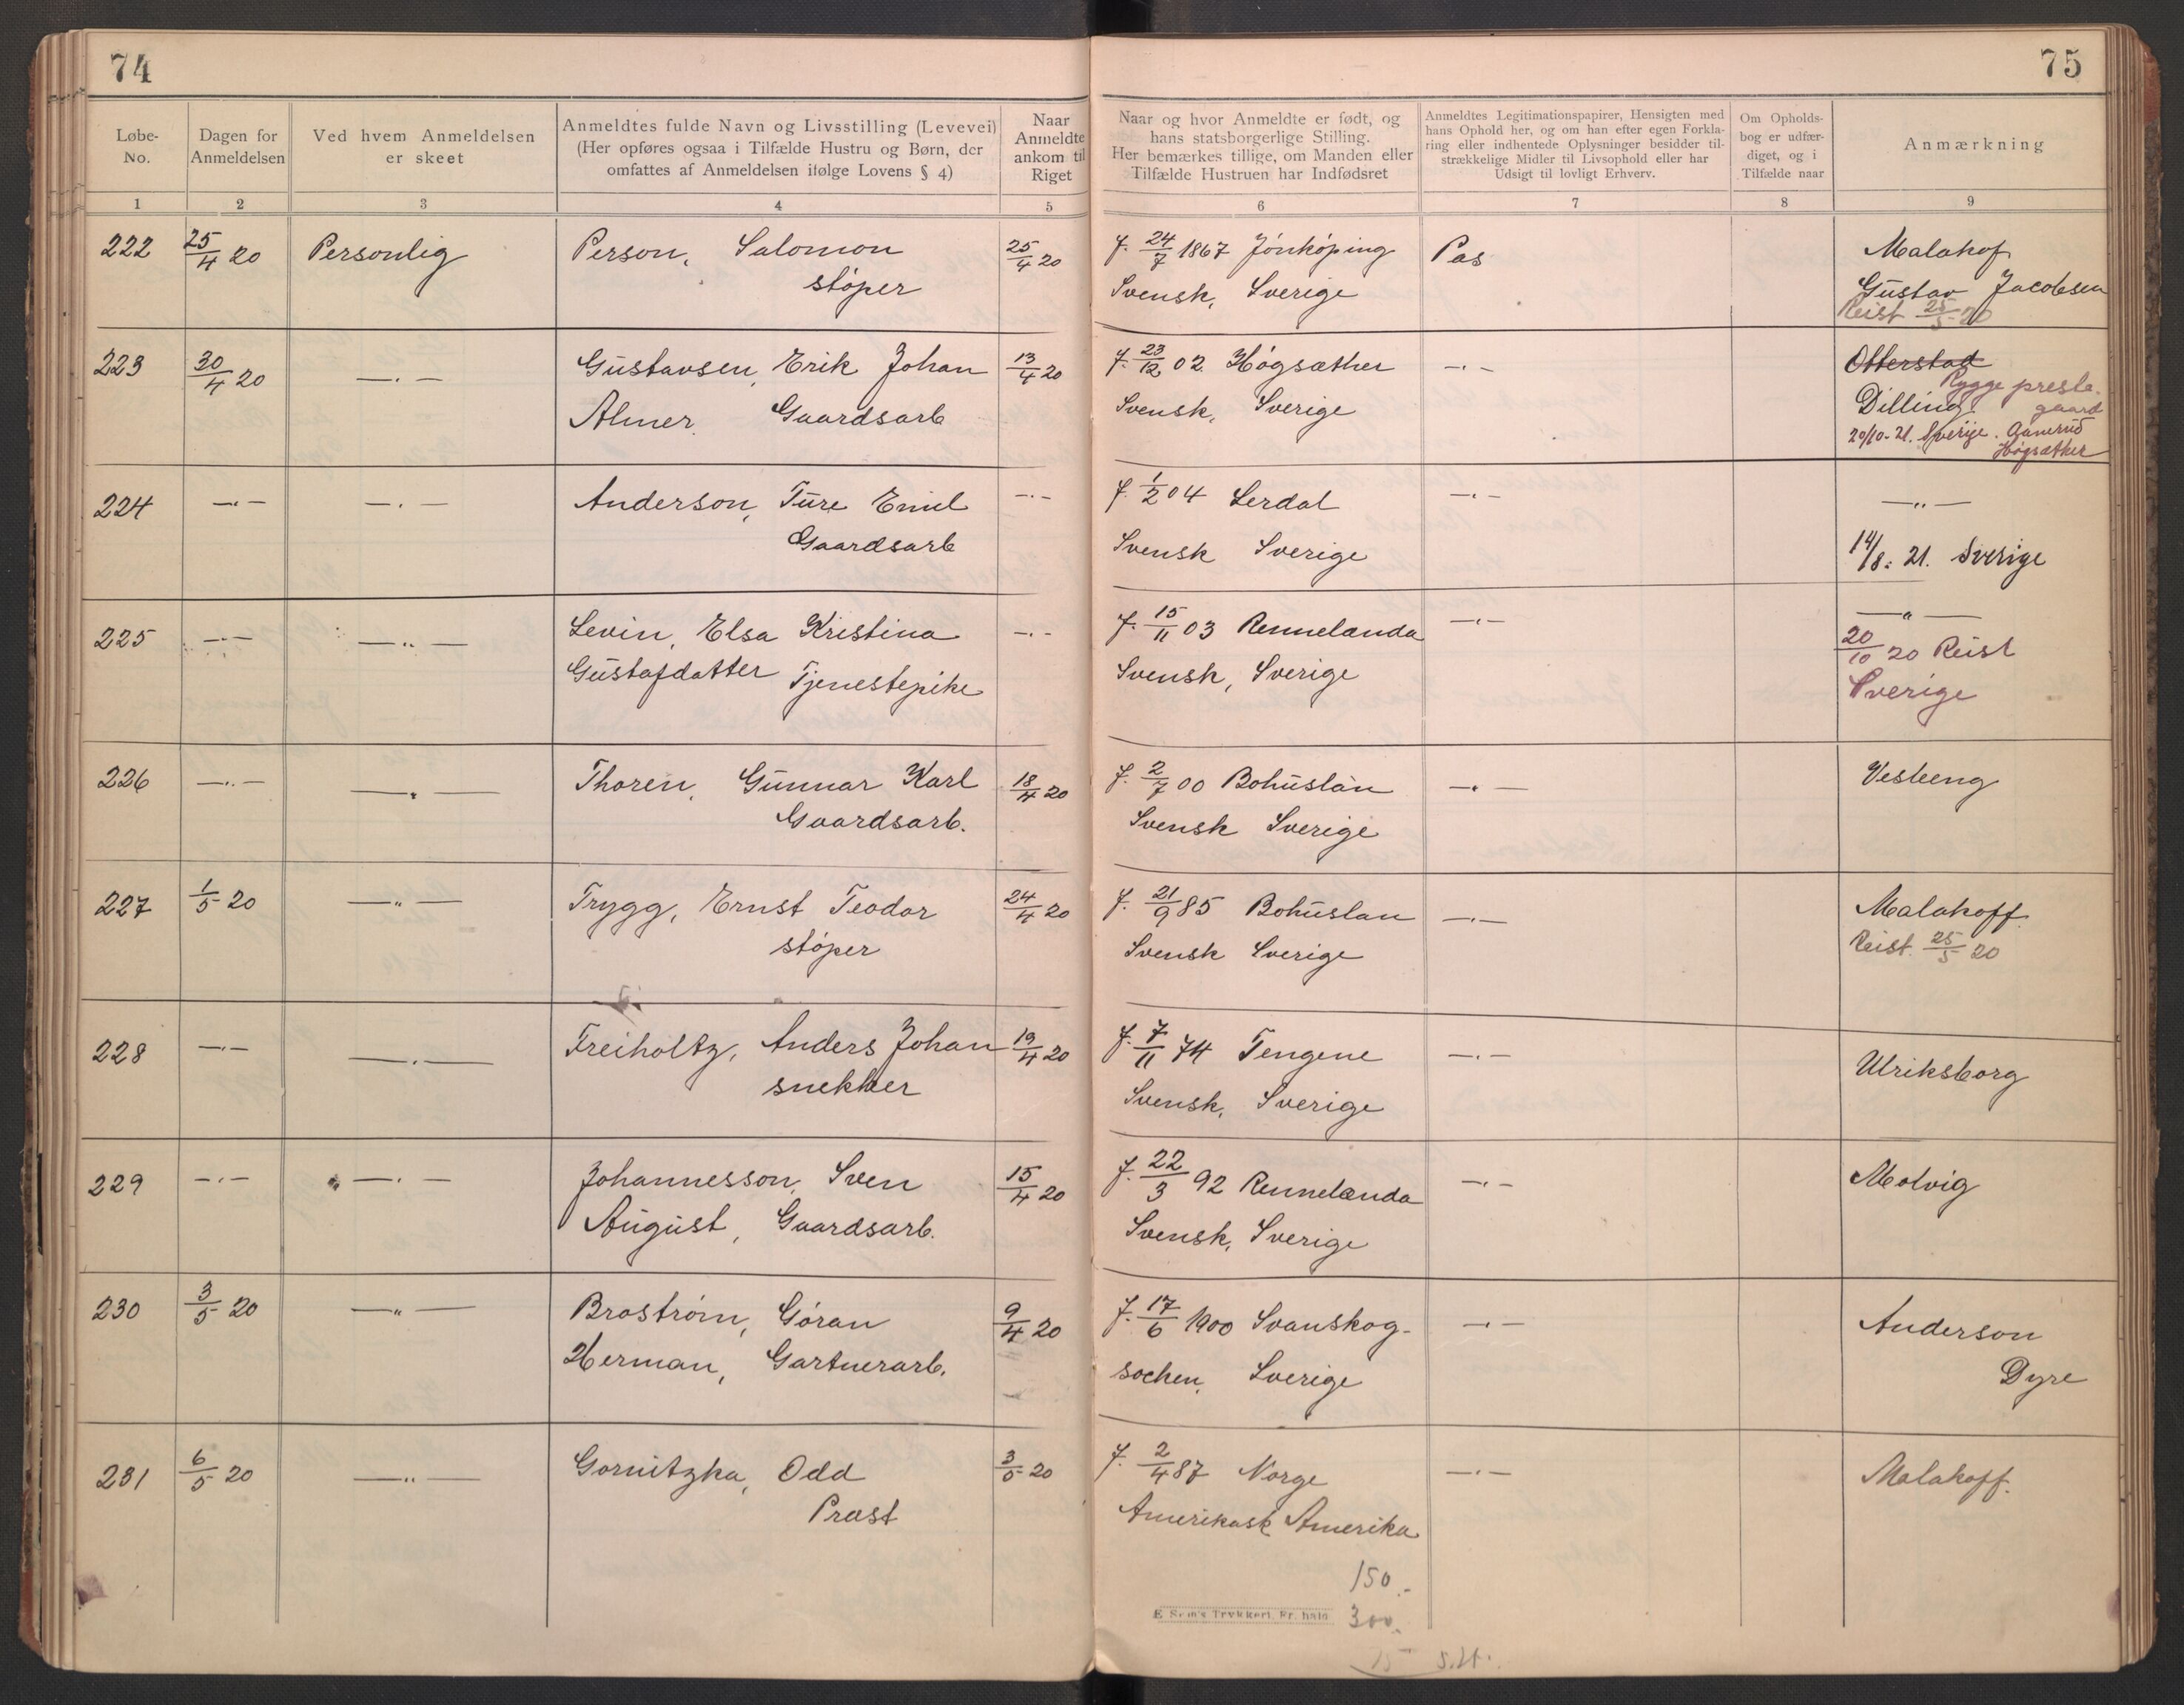 74
75
Løbe-
No.
Dagen for
Anmeldelsen
Ved hvem Anmeldelsen
er skeet
Anmeldtes fulde Navn og Livsstilling (Levevei)
(Her opføres ogsaa i Tilfælde Hustru og Børn, der
omfattes af Anmeldelsen ifølge Lovens § 4)
Naar
Anmeldte
ankom til
Riget
Naar og hvor Anmeldte er født, og
hans statsborgerlige Stilling.
Her bemærkes tillige, om Manden eller
Tilfælde Hustruen har Indfødsret
Anmeldtes Legitimationspapirer, Hensigten med
hans Ophold her, og om han efter egen Forkla-
ring eller indhentede Oplysninger besidder til-
strækkelige Midler til Livsophold eller har
Udsigt til lovligt Erhverv.
Om Opholds-
bog er udfær-
diget, og i
Tilfælde naar
Anmærkning
1 2 3 4 5 6 7 8 9
222 25/4 20 Personlig Person, Salomon 25/4 20 f. 24/7 1867 Jönköping Pas Malakof
støper Svensk, Sverige Gustav Jacobsen
Reist 25/5 20
223 30/4 20 —.— Gustavsen, Erik Johan 13/4 20 f. 23/12 02 Högsæther —.— Otterstad
Rygge preste-
Almer. Gaardsarb Svensk, Sverige Dilling. gaard
20/10-21. Sverige. Gunerud
Högsæther
224 —.— —.— Anderson, Ture Emil —.— f. 1/2 04 Lerdal —.— —"—
Gaardsarb Svensk Sverige 14/8. 21. Sverige
225 —.— —"— Levin, Elsa Kristina —.— f. 15/11 03 Rennelanda —.— —"—
Gustafdatter Tjenestepike Svensk, Sverige 20/10 20 Reist
Sverige
226 —.— —.— Thoren, Gunnar Karl 18/4 20 f. 2/7 00 Bohuslän —.— Vesteng
Gaardsarb. Svensk Sverige
227 1/5 20 —"— Trygg, Ernst Teodor 24/4 20 f. 21/9 85 Bohuslan —.— Malakoff.
støper Svensk Sverige Reist. 25/5 20
228 —.— —.— Freiholtz, Anders Johan 19/4 20 f. 7/11 74 Tengene —.— Ulriksborg
snekker Svensk, Sverige
229 —.— —.— Johannesson, Sven 15/4 20 f. 22/3 92 Rennelanda —.— Molvig
August, Gaardsarb. Svensk, Sverige
230 3/5 20 —"— Broström, Göran 9/4 20 f. 17/6 1900 Svanskog- —.— Anderson
Herman, Gartnerarb. sochen, Sverige Dyre
231 6/5 20 —"— Gornitzka, Odd 3/5 20 f. 2/4 87 Norge —.— Malakoff.
Prast Amerikask Amerika
150.-
E Sem's Trykkeri, Fr. hald
300.
15